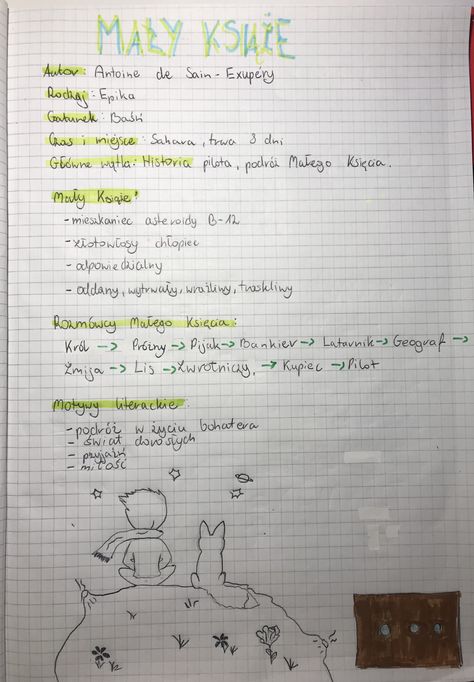 MAŁY KSIĄŻE
Autor: Antoine de Sain-Exupéry
Rodzaj: Epika
Gatunek: Baśń
Czas i miejsce: Sahara, trwa 8 dni
Główne wątla: Historia pilota, podróż Małego Księcia.
Mały Książe:
- mieszkaniec asteroidy B-12
- złotowłosy chłopiec
- odpowiedzialny
- oddany, wytrwały, wrażliwy, troskliwy
Rozmówcy Małego Księcia:
Król → Próżny → Pijak → Bankier → Latarnik → Geograf →
Żmija → Lis → Zwrotniczy, → Kupiec → Pilot
Motywy literackie:
- podróż w życiu bohatera
- świat dorosłych
- przyjaźń
- miłość